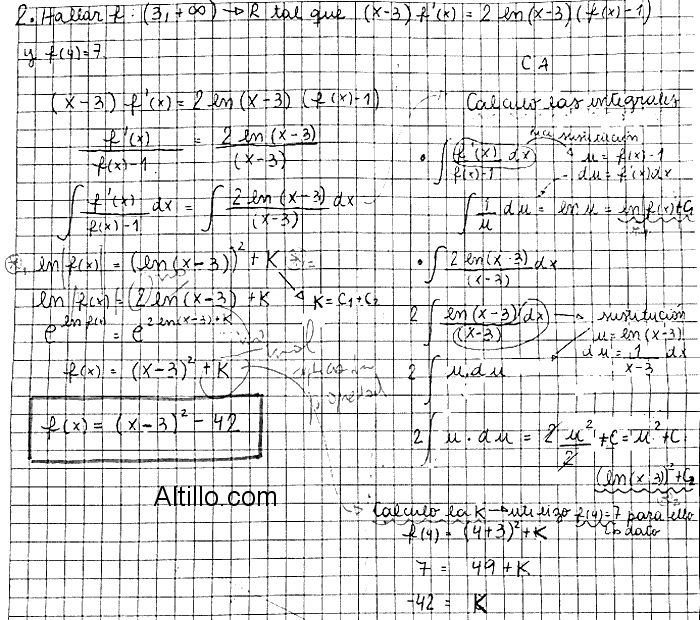 2. Hallar f: (3, +∞) → R tal que (x-3) f'(x) = 2 ln(x-3) (f(x)-1)
y f(4)=7.
(x-3) f'(x) = 2 ln(x-3) (f(x)-1)
f'(x)/f(x)-1 = 2 ln(x-3)/(x-3)
∫ f'(x)/f(x)-1 dx = ∫ 2 ln(x-3)/(x-3) dx
ln f(x) = (ln(x-3))² + K
ln f(x) = 2 ln(x-3) + K
K = C1 + C2
e^ln f(x) = e^2 ln(x-3)+K
f(x) = (x-3)² + K
f(x) = (x-3)² - 42
Altillo.com
CA
Calculo las integrales
• ∫ f'(x) dx/f(x)-1
sustitución
u = f(x)-1
du = f'(x)dx
∫ 1/u du = ln u = ln f(x)+C1
• ∫ 2 ln(x-3)/(x-3) dx
2 ∫ ln(x-3) dx/(x-3) → sustitución
u = ln(x-3)
du = 1/x-3 dx
2 ∫ u.du
2 ∫ u.du = 2 u²/2 + C = u² + C
(ln(x-3))² + C2
Calculo la K → utilizo f(4)=7 para ello
↳ dato
f(4) = (4+3)² + K
7 = 49 + K
-42 = K